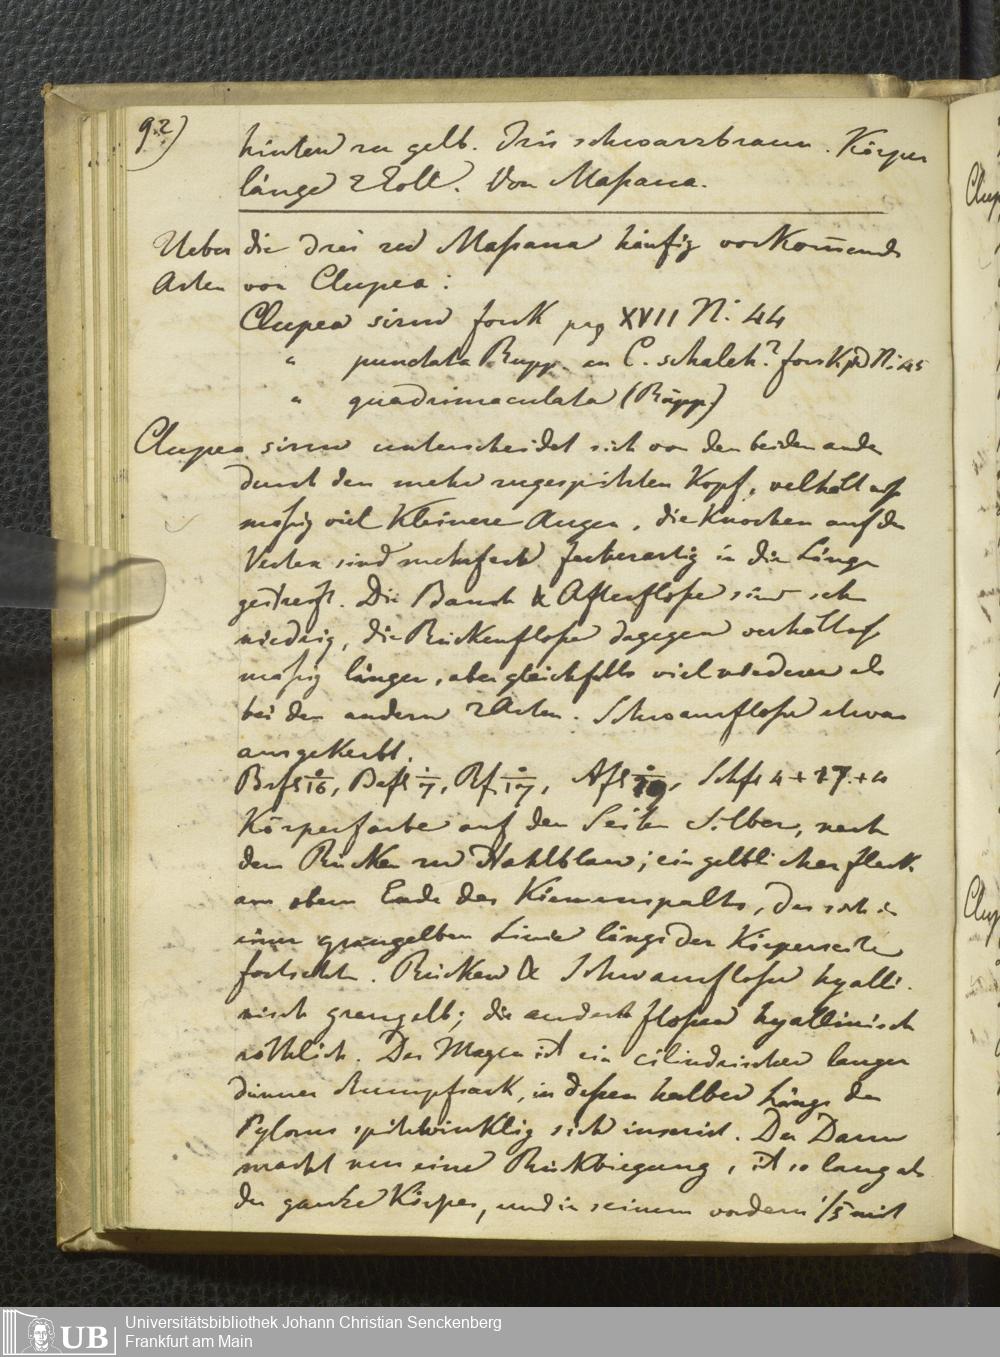 92)
hinten zu gelb. Iris schwarzbraun. Körper
länge 2 Zoll. Von Maſsaua.
Ueber die drei zu Maſsaua häufig vorkom̄ende
Arten von Clupea:
Clupea sirm forsk pag XVII N: 44
" punctata Rupp. an C. schaleh? forsk N: 45
" quadrimaculata (Rüpp.)
Clupea sirm unterscheidet sich von den beiden andn
durch den mehr zugespitzten Kopf, velhältniſs
mäſsig viel kleinere Augen, die Knochen auf dem
sind mehrfach in die Länge
gestreift. Die Bauch & Afterfloſse sind sehr
niedrig, die Rückenfloſse dagegen verhältniſs
mäſsig länger, aber gleichfalls viel niederer als
bei den andern 2 Arten. Schwanzfloſse etwas
ausgekerbt.
Brfl 0/16, Bcfl 1/7, Rf. 0/17, Afl 0/19, Schfl 4 + 17. + 4
Körperfarbe auf den Seiten Silber, nach
dem Rücken zu Stahlblau; ein gelblicher fleck
am obern Ende des Kiemenspalts, der sich in
einer grüngelben Linie längs der Körperseite
fortsetzt. Rücken & Schwanzfloſse hyalli-
nisch grüngelb; die andern floſsen hyallinisch
röthlich. Der Magen ist ein cilindrischer langer
dünner Stumpfsack, in deſsen halber Länge der
Pylorus spitzwinklig sich inserirt. Der Darm
macht nur eine Rückbiegung, ist so lang als
der ganze Körper, und in seinem vordern 1/5 mit
UB
Universitätsbibliothek Johann Christian Senckenberg
Frankfurt am Main